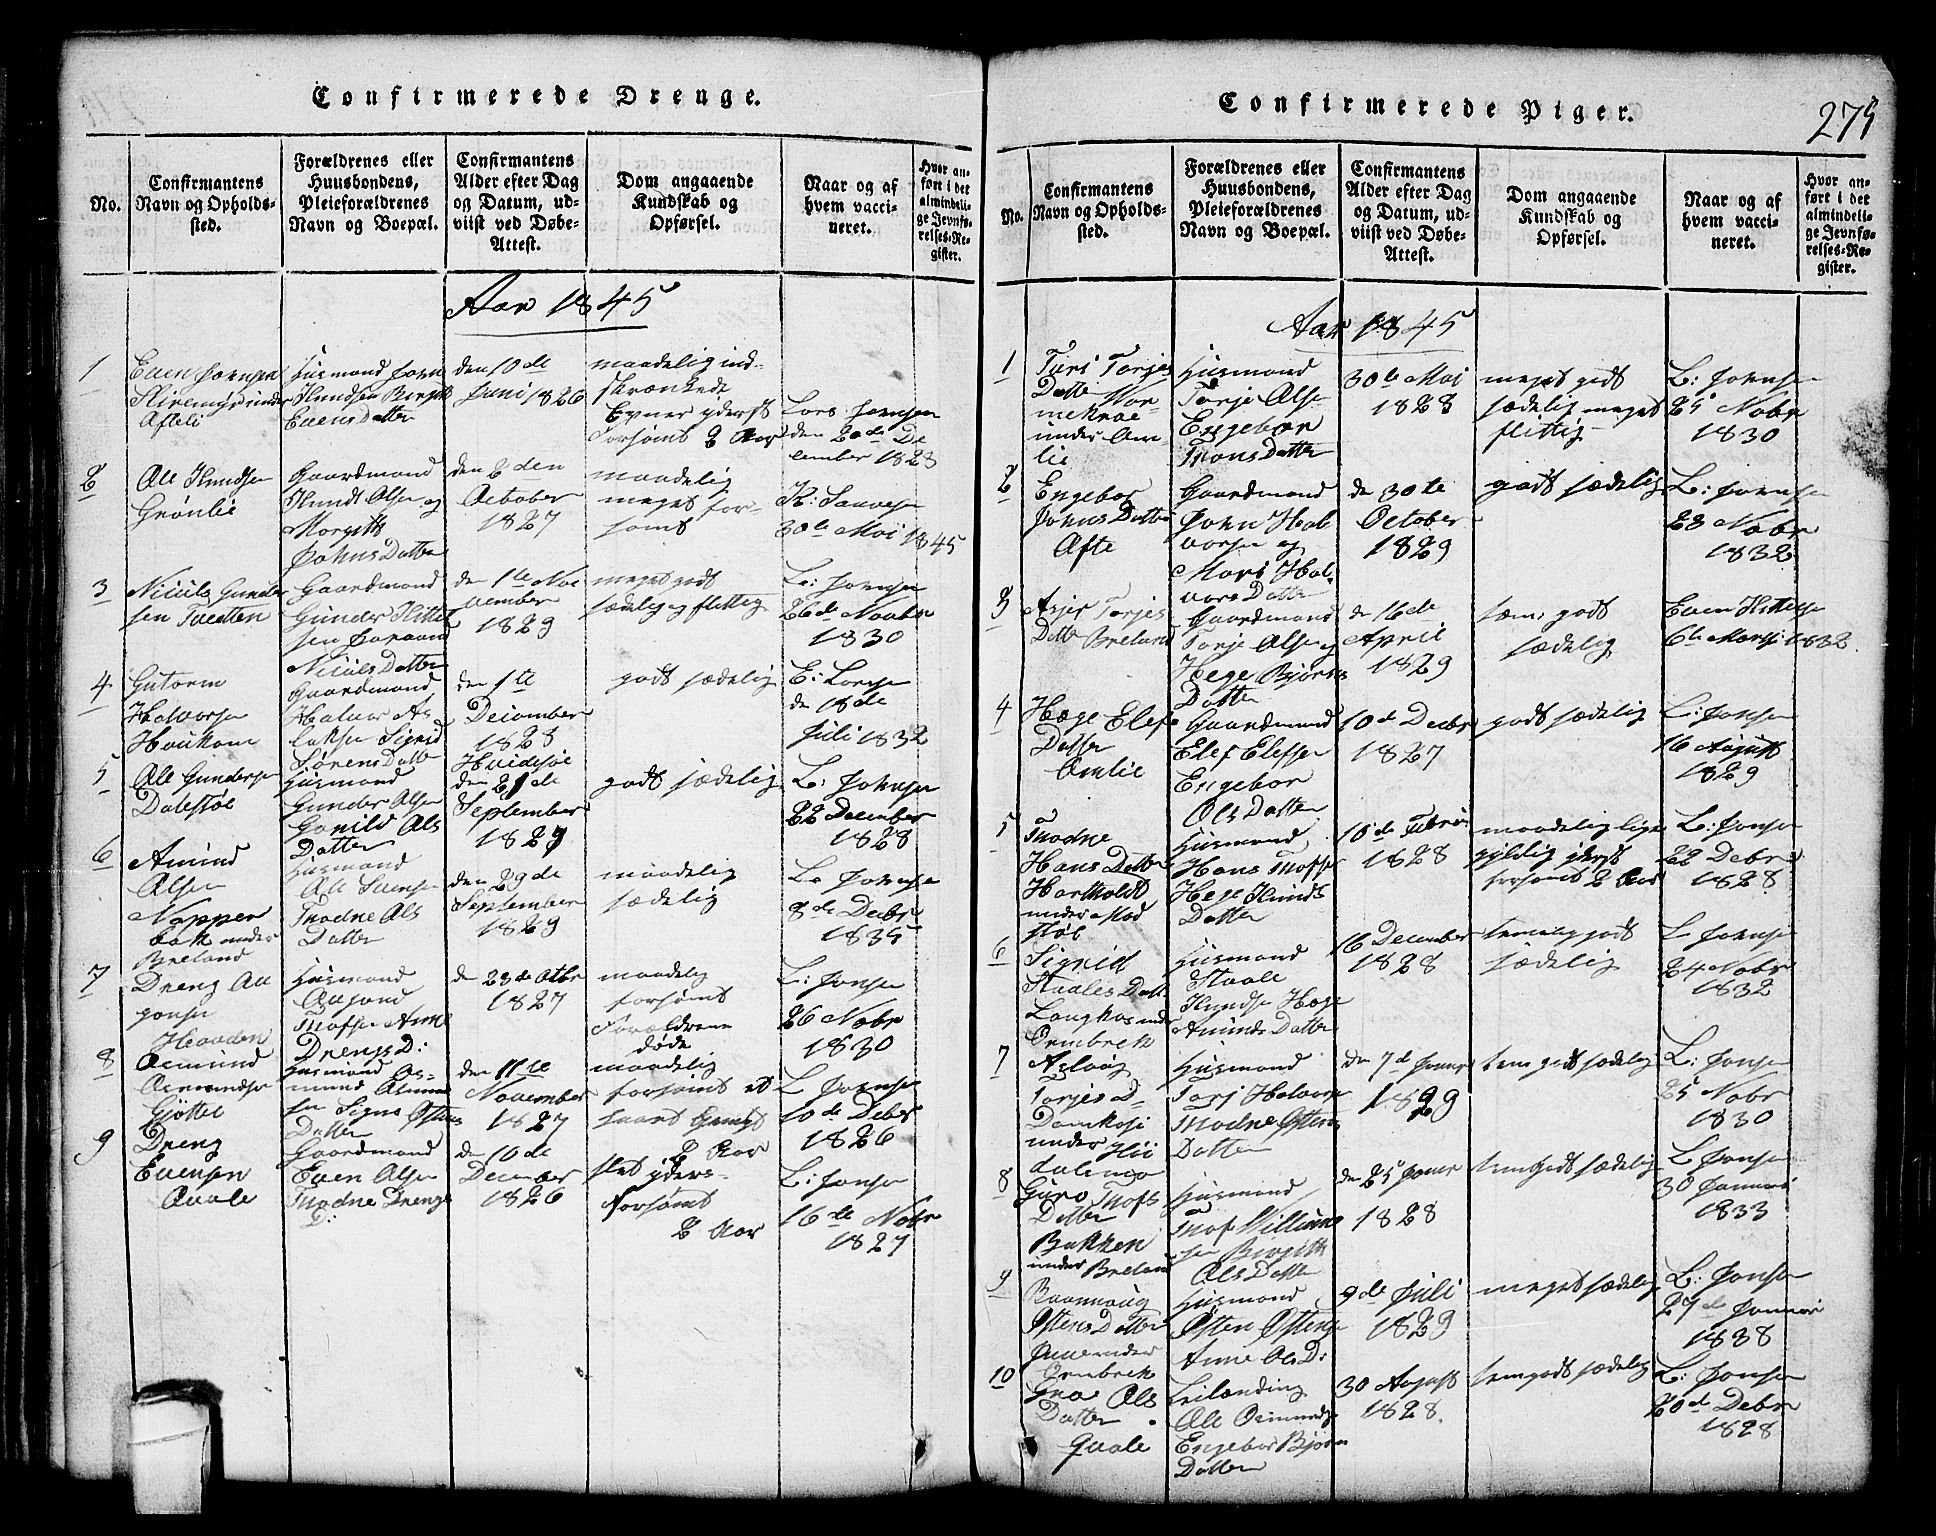 Confirmerede Drenge.
No.
Confirmantens
Navn og Opholds-
sted.
Forældrenes eller
Huusbondens,
Pleieforældrenes
Navn og Boepæl.
Confirmantens
Alder efter Dag
og Datum, ud-
viist ved Døbe-
Attest.
Dom angaaende
Kundskab og
Opførsel.
Naar og af
hvem vacci-
neret.
Hvor an-
ført i det
almindeli-
ge Jevnfø-
relses-Re-
gister.
Aar 1845
1
Even Jornsen
under
Afteli
Husmand Jorn
Knudsen Borgith
Evens Datter
den 10 de
Juni 1826
maadelig ind-
skrænkede
Evner yderst
forsømt 2 Aar
Lars Jornsen
den 20 de De
cember 1823
2
Ole Knudsen
Grønlie
Gaardmand
Knudt Olsen og
Morgith
Johns Datter
den 2 den
October
1827
maadelig
meget for-
sømt
K: Sauvesen
30te Mai 1845
3
Niculs Gunder
sen Tveitten
Gaardmand
Gunder Kittel
sen Joraand
Niculs Datter
den 1te No
vember
1829
meget godt
sædelig og flittig
L: Jornsen
26de Novbr
1830
4
Gutorm
Halvorsen
Houkom
Gaardmand
Halvor As
laksen Sigrid
Sørens Datter
den 1te
December
1828
Hvidesøe
godt sædelig
E: Larsen
de 18de
Juli 1832
5
Ole Gundersen
Dalestøl
Husmand
Gunder Olsen
Gonild Ols
Datter
den 21 de
September
1827
godt sædelig
L: Johnsen
22 December
1828
6
Amund
Olsen
Napper
bak under
Breland
Husmand
Ole Svensen
Thodne Ols
Datter
den 29 de
September
1829
maadelig
sædelig
L: Johnsen
8 de Decbr
1835
7
Dreng Au
gonsen
Haavden
Husmand
Augond
Thofsen Anne
Drengs D:
de 23de Octbr
1827
maadelig
forsømt
Forældrene
døde
L: Jonsen
26 Nobr
1830
8
Osmund
Osmundsen
Gjøttil
Husmand Os-
mund Osmund
sen Signe Østens
Datter
den 11te
November
1827
maadelig
forsømt et
2 Aar
L Jornsen
10 de Debr
1826
9
Dreng
Evensen
Qvale
Gaardmand
Even Olsen
Thodne Drengs
D:
de 10 de
December
1826
slet yders-
forsømt
2 Aar
L: Jonsen
16 de Nobr
1827
Confirmerede Piger.
275
No.
Confirmantens
Navn og Opholds-
sted.
Forældrenes eller
Huusbondens,
Pleieforældrenes
Navn og Boepæl.
Confirmantens
Alder efter Dag
og Datum, ud-
viist ved Døbe-
Attest.
Dom angaaende
Kundskab og
Opførsel.
Naar og af
hvem vacci-
neret.
Hvor an-
ført i det
almindeli-
ge Jevnfø-
relses-Re-
gister.
Aar 1845
1
Turi Torjes
Datter
under Om-
lie
Husmand
Torje Olsen
Engebor
Thons Datter
30te Mai
1828
meget godt
sædelig meget
flittig
L: Johnsen
25 Nobr
1830
2
Engebor
Johns Datter
Afte
Gaardmand
John Hal
vorsen og
Mari Hal-
vors Datter
de 30te
October
1829
godt sædelig
L: Jornsen
28 Nobr
1832
3
Asjer Torjes
Datter Breland
Gaardmand
Torje Olsen og
Hege Bjørns
Datter
de 16de
April
1829
tem: godt
sædelig
Even Kittelsen
6te Marsi 1832.
4
Hæge Elefs
Datter
Omlie
Gaardmand
Elef Elefsen
Engebor
Ols Datter
10 de Decbr
1827
godt sædelig
L: Jonsen
16 August
1829
5
Thodne
Hans Datter
Hartholdt
under Mod
støl
Husmand
Hans Thofsen
Hege Knuds
Datter
18de Febru
1828
maadelig lige
gyldig yderst
forsømt 2 Aar
L: Jonsen
22 Debr
1828
6
Sigrid
Staales Datter
Langkos under
Ormbrek
Husmand
Staale
Knudsen Hæge
Amunds Datter
16 December
1828
temelig godt
sædelig
L Johnsen
24 Nobr
1832
7
Aslaug
Torjes D-
under
dalemo
Husmand
Torj Halvorsen
Thodne Østens
Datter
den 7 de Januar
1829
tem godt sædelig
L: Jonsen
25 Nobr
1830
8
Guro Thofs
Datter
Bakken
under Breland
Husmand
Thof Villium
sen Birgith
Ols Datter
den 25 Januar
1828
tem godt sædelig
L Jonsen
30 Januari
1833
9
Raannaug
Østens Datter
under
Ormbrek
Husmand
Østen Østensen
Anne Ols D:
9de Juli
1829
meget sædelig
L: Jonsen
27de Januari
1838
10
Gro Ols
Datter
Qvale
Leilænding
Ole Osmundsen
Engebor Bjørns
Datter
30 August
1828.
tem godt sædelig
L: Jonsen
20de Debr
1828